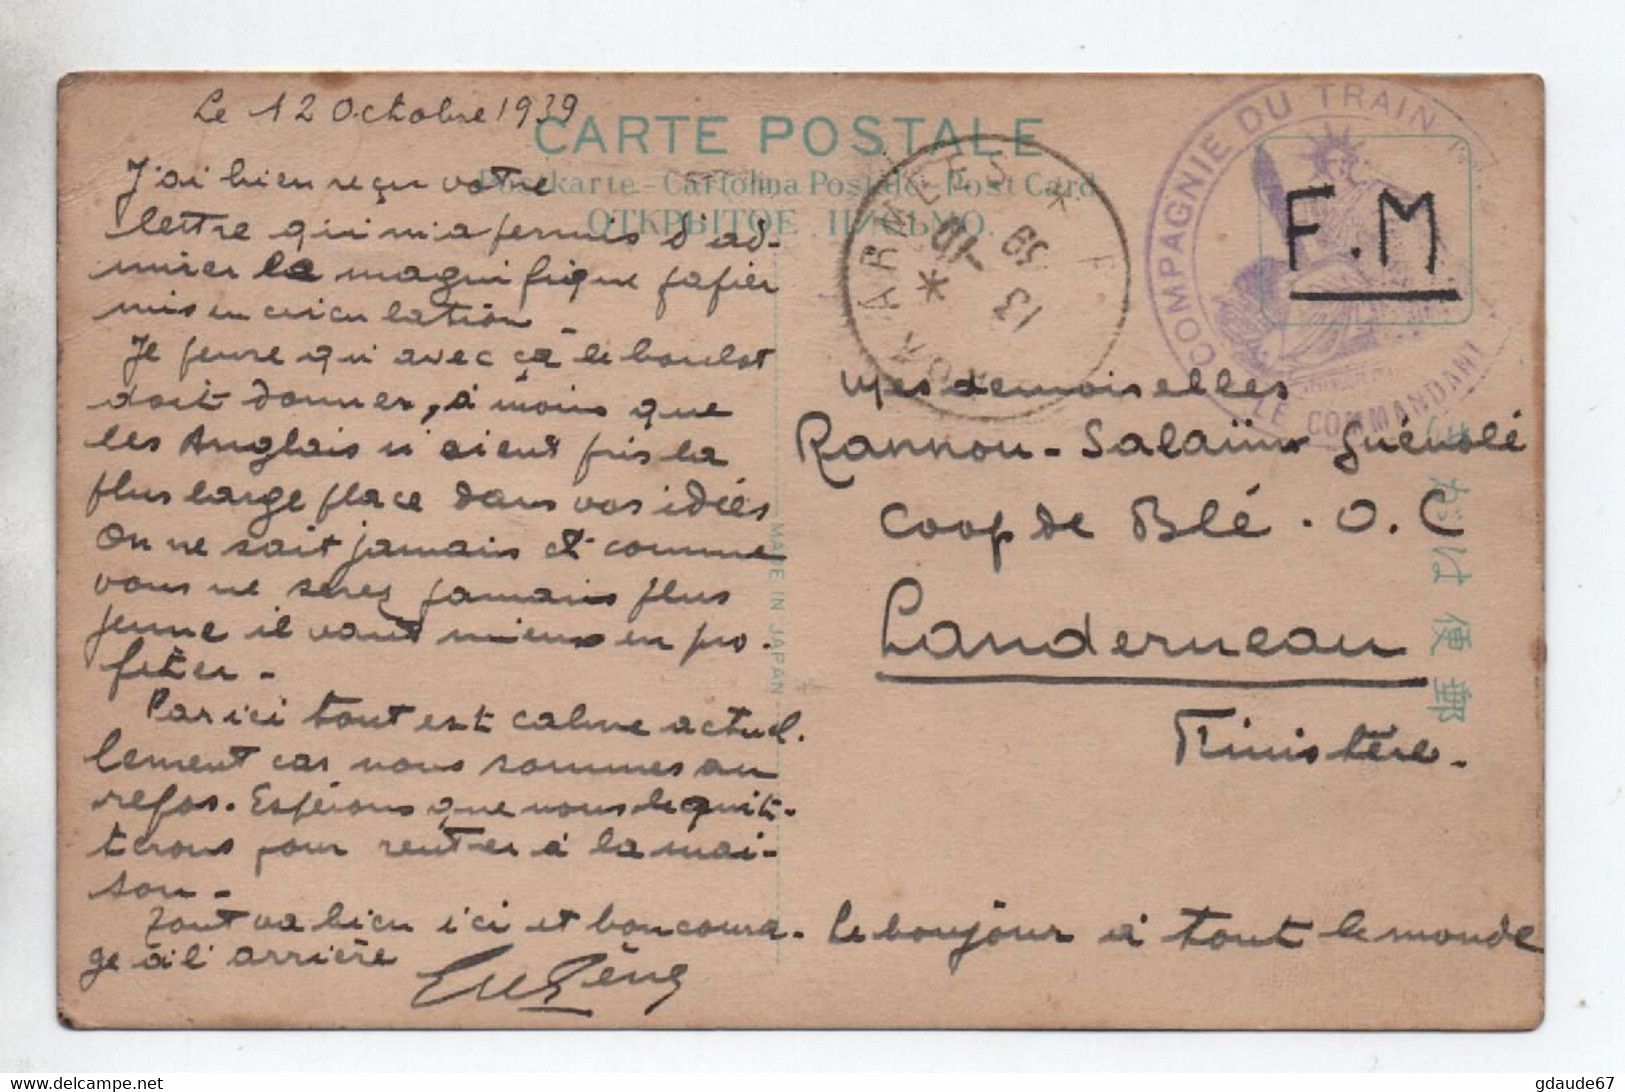 Le 12 Octobre 1939
CARTE POSTALE
Postkarte - Cartolina Postale - Post Card
ОТКРЫТОЕ ПИСЬМО.
J'ai bien reçu votre
lettre qui m'a permis d'ad-
mirer la magnifique papier
mis en circulation -
Je pense qui avec ça le boulot
doit donner, à moins que
les Anglais n'aient pris la
plus large place dans vos idées
On ne sait jamais et comme
vous ne serez jamais plus
jeune il vaut mieux en pro-
fiter -
Par ici tout est calme actuel.
lement car nous sommes au
repos. Espérons que nous le quit-
terons pour rentrer à la mai-
son -
Tout va bien ici et bon coura-
ge à l'arrière
Eugène
MADE IN JAPAN
* ARMEES *
13 10 39
COMPAGNIE DU TRAIN
LE COMMANDANT
F.M
Mesdemoiselles
Rannou - Salaün Guénolé
Coop de Blé . O. C
Landerneau
Finistère -
郵便はがき
Le bonjour à tout le monde
gdaude67